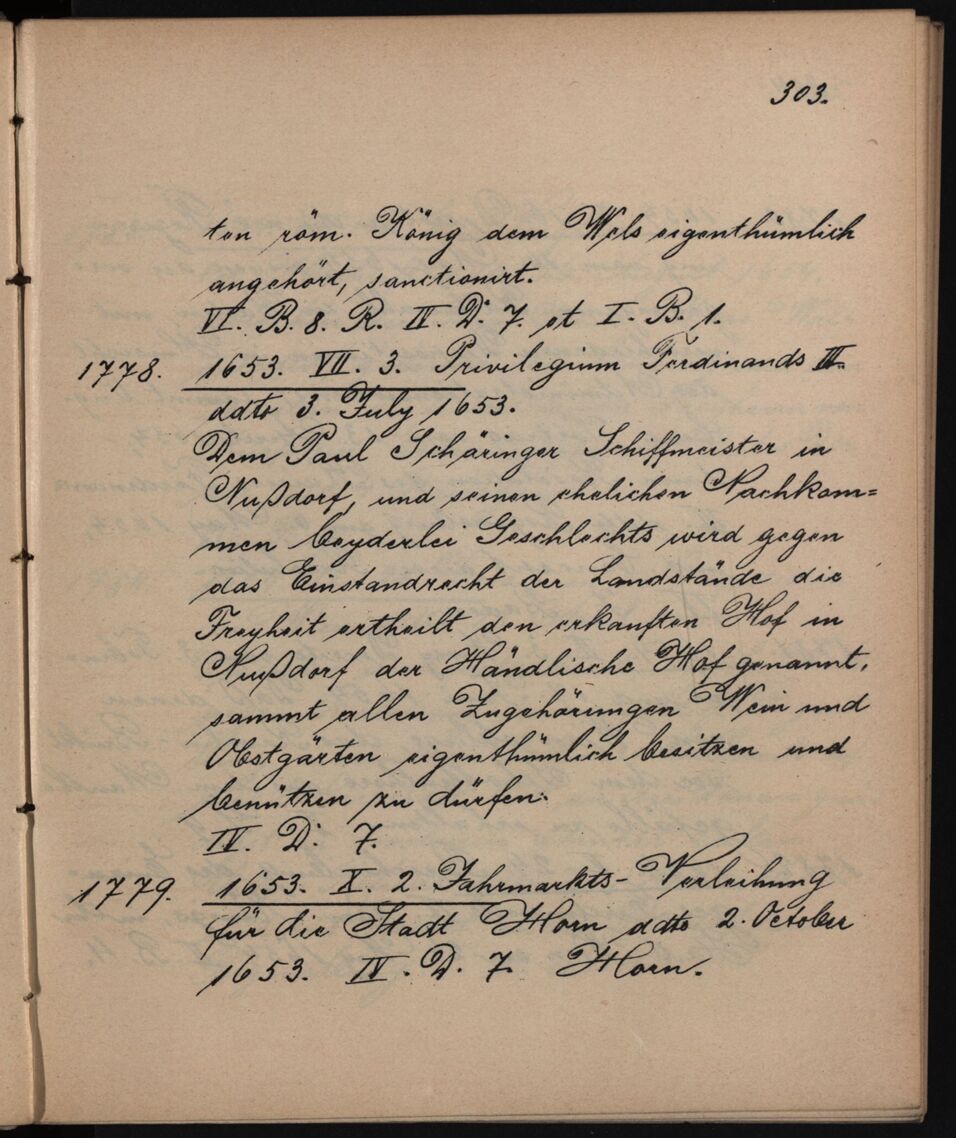 303.
ten röm. König dem Wels eigenthümlich
angehört, sanctionirt.
VI. B. 8. R. IV. D. 7. et I. B. 1.
1778. 1653. VII. 3. Privilegium Ferdinands III.
ddto 3. July 1653.
Dem Paul Schäringer Schiffmeister in
Nußdorf, und seinen ehelichen Nachkom=
men beyderlei Geschlechts wird gegen
das Einstandrecht der Landstände die
Freyheit ertheilt den erkauften Hof in
Nußdorf der Händlische Hof genannt,
sammt allen Zugehörungen Wein und
Obstgärten eigenthümlich besitzen und
benützen zu dürfen.
IV. D. 7.
1779. 1653. X. 2. Jahrmarkts-Verleihung
für die Stadt Horn ddto 2. October
1653. IV. D. 7. Horn.